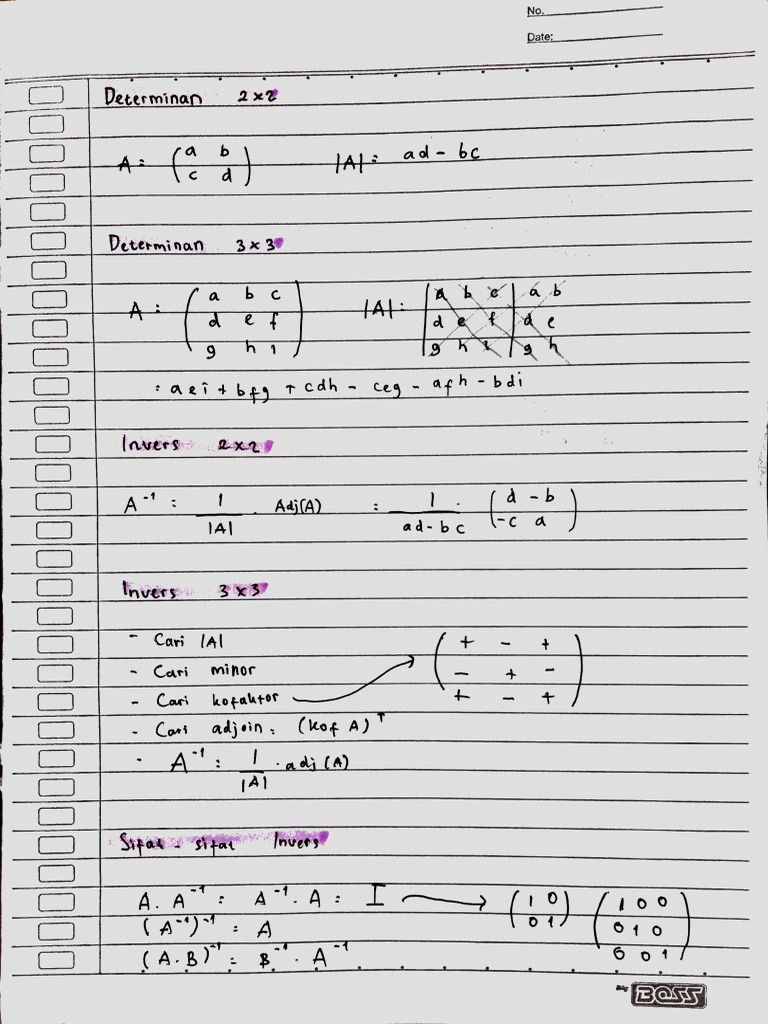 No.
Date:
Determinan 2×2
A = (a b
c d) |A| = ad - bc
Determinan 3×3
A = (a b c
d e f
g h i) |A| = |a b c| a b
|d e f| d e
|g h i| g h
= aei + bfg + cdh - ceg - afh - bdi
Invers 2×2
A⁻¹ = 1/|A| . Adj(A) = 1/ad-bc . (d -b
-c a)
Invers 3×3
- Cari |A|
- Cari minor
- Cari kofaktor → (+ - +
- + -
+ - +)
- Cari adjoin = (kof A)ᵀ
- A⁻¹ = 1/|A| . adj(A)
Sifat - sifat Invers
A. A⁻¹ = A⁻¹. A = I → (1 0
0 1) (1 0 0
0 1 0
0 0 1)
(A⁻¹)⁻¹ = A
(A.B)⁻¹ = B⁻¹. A⁻¹
By BOSS